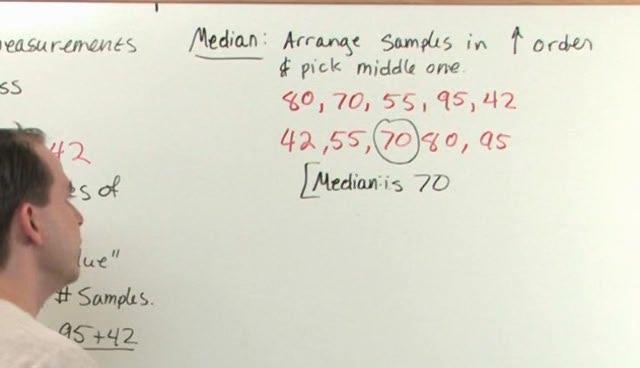 measurements
ss
42
es of
lue"
# Samples.
95+42
Median: Arrange Samples in ↑ order
& pick middle one.
80, 70, 55, 95, 42
42, 55, 70 80, 95
[Median is 70